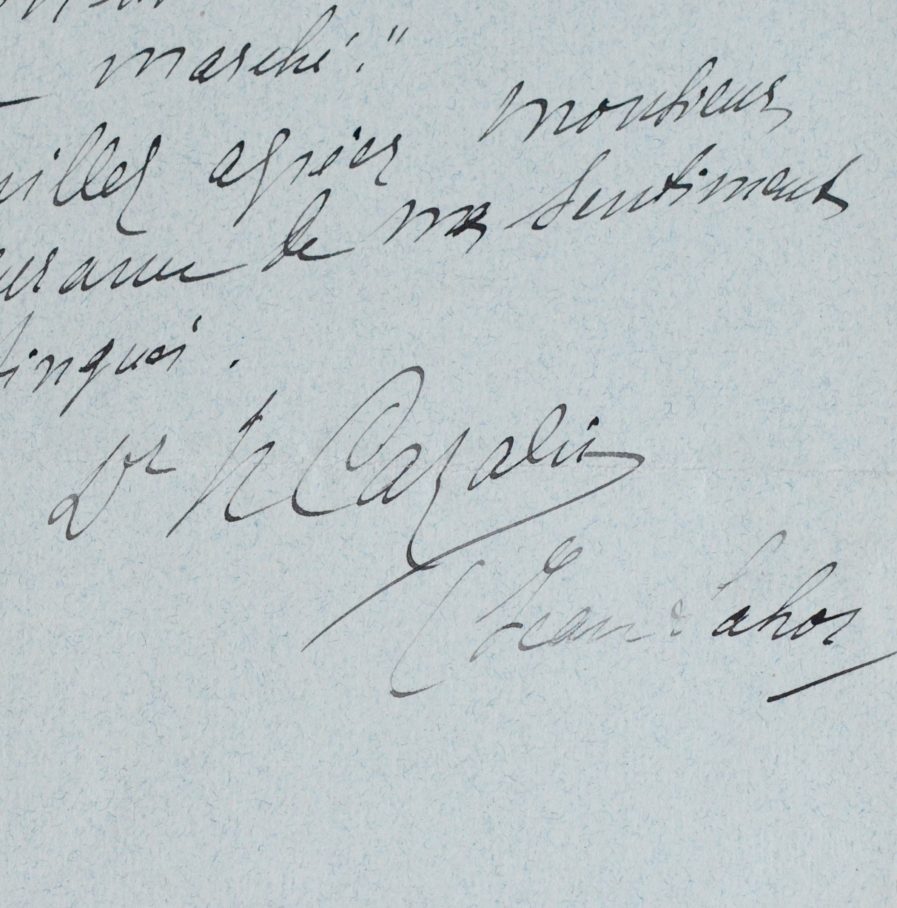 marché."
uillez agréer monsieur
urance de mes sentiments
tingués.
Dr H Cazalis
(Jean Lahor